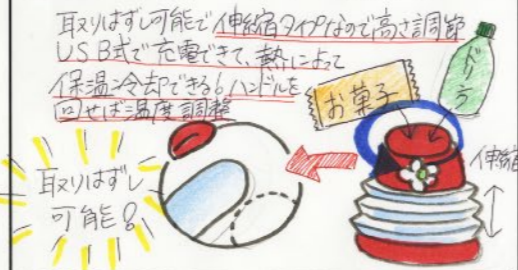 取りはずし可能で伸縮タイプなので高さ調節
USB式で充電できて、熱によって
保温冷却できる。ハンドルを
回せば温度調整
お菓子
ドリンク
伸縮
取りはずし
可能!